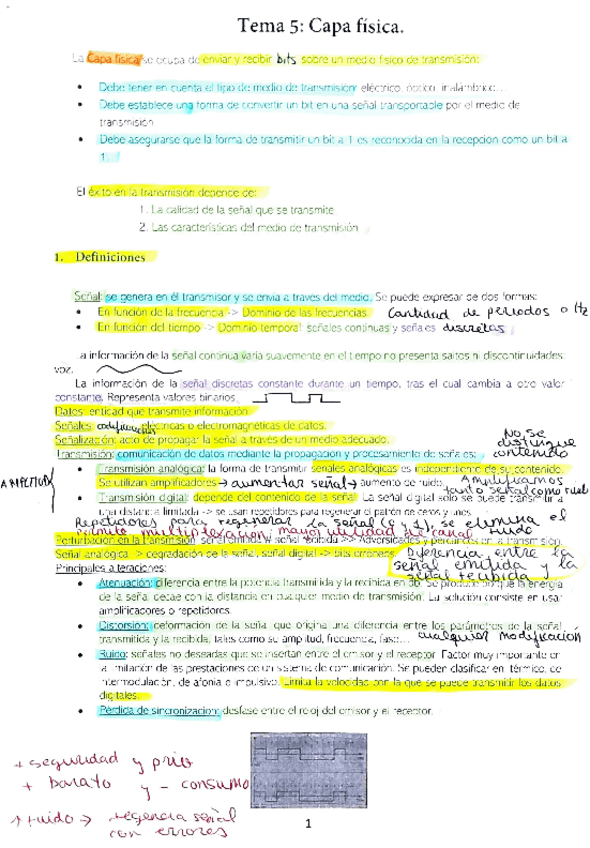 Tema 5: Capa física.
La Capa física se ocupa de enviar y recibir bits sobre un medio físico de transmisión:
• Debe tener en cuenta el tipo de medio de transmisión: eléctrico, óptico, inalámbrico…
• Debe establece una forma de convertir un bit en una señal transportable por el medio de
transmisión
• Debe asegurarse que la forma de transmitir un bit a 1 es reconocida en la recepcion como un bit a
1…
El éxito en la transmisión depende de:
1. La calidad de la señal que se transmite
2. Las características del medio de transmisión
1. Definiciones
Señal: se genera en el transmisor y se envia a través del medio. Se puede expresar de dos formas:
• En función de la frecuencia -> Dominio de las frecuencias. Cantidad de periodos o Hz
• En función del tiempo -> Dominio temporal: señales continuas y señales discretas
La información de la señal continua varía suavemente en el tiempo no presenta saltos ni discontinuidades:
voz.
La información de la señal discretas constante durante un tiempo, tras el cual cambia a otro valor
constante. Representa valores binarios.
Datos: entidad que transmite información.
Señales: codificaciones eléctricas o electromagnéticas de datos.
Señalización: acto de propagar la señal a través de un medio adecuado.
No se
distingue
contenido
Transmisión: comunicación de datos mediante la propagación y procesamiento de señales:
AMPLITUD
• Transmisión analógica: la forma de transmitir señales analógicas es independiente de su contenido.
Se utilizan amplificadores → aumentar señal → aumento de ruido. Amplificamos
tanto señal como ruido
• Transmisión digital: depende del contenido de la señal. La señal digital solo se puede transmitir a
una distancia limitada -> se usan repetidores para regenerar el patrón de ceros y unos.
Repetidores para regenerar la señal (0 y 1), se elimina el
ruido
permite multiplexacion, mayor utilidad de canal
Perturbación en la transmisión: señal emitida ≠ señal recibida >> Adversidades y pérdidas en la transmisión.
Señal analógica -> degradación de la señal, señal digital -> bits erróneos.
Diferencia entre la
señal emitida y la
señal recibida
Principales alteraciones:
• Atenuación: diferencia entre la potencia transmitida y la recibida en dB. Se produce por que la energía
de la señal decae con la distancia en cualquier medio de transmisión. La solución consiste en usar
amplificadores o repetidores.
• Distorsión: deformación de la señal que origina una diferencia entre los parámetros de la señal
transmitida y la recibida, tales como su amplitud, frecuencia, fase… cualquier modificación
• Ruido: señales no deseadas que se insertan entre el emisor y el receptor. Factor muy importante en
la limitación de las prestaciones de un sistema de comunicación. Se pueden clasificar en: térmico, de
intermodulación, de afonia e impulsivo. Limita la velocidad con la que se puede transmitir los datos
digitales.
• Pérdida de sincronización: desfase entre el reloj del emisor y el receptor.
+ seguridad y priv
+ barato y - consumo
↑ ruido → regenera señal
con errores
1